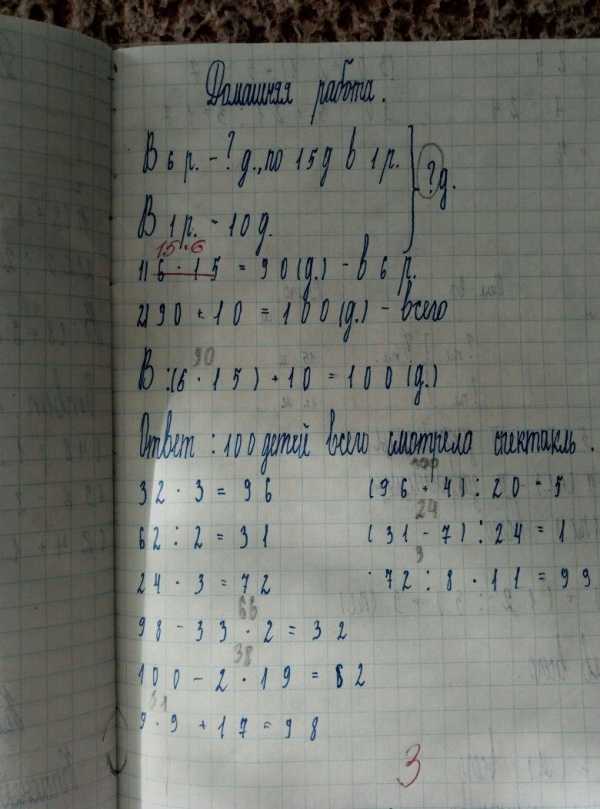 Домашняя работа.
В 6 р. - ? д., по 15 д в 1 р.
? д.
В 1 р. - 10 д.
15 · 6
1) 6 · 15 = 90 (д.) - в 6 р.
2) 90 + 10 = 100 (д.) - всего
90
В :(6 · 15) + 10 = 100 (д.)
Ответ : 100 детей всего смотрело спектакль.
100
32 · 3 = 96 (96 + 4) : 20 = 5
24
62 : 2 = 31 (31 - 7) : 24 = 1
9
24 · 3 = 72 72 : 8 · 11 = 99
66
98 - 33 · 2 = 32
38
100 - 2 · 19 = 62
81
9 · 9 + 17 = 98
3